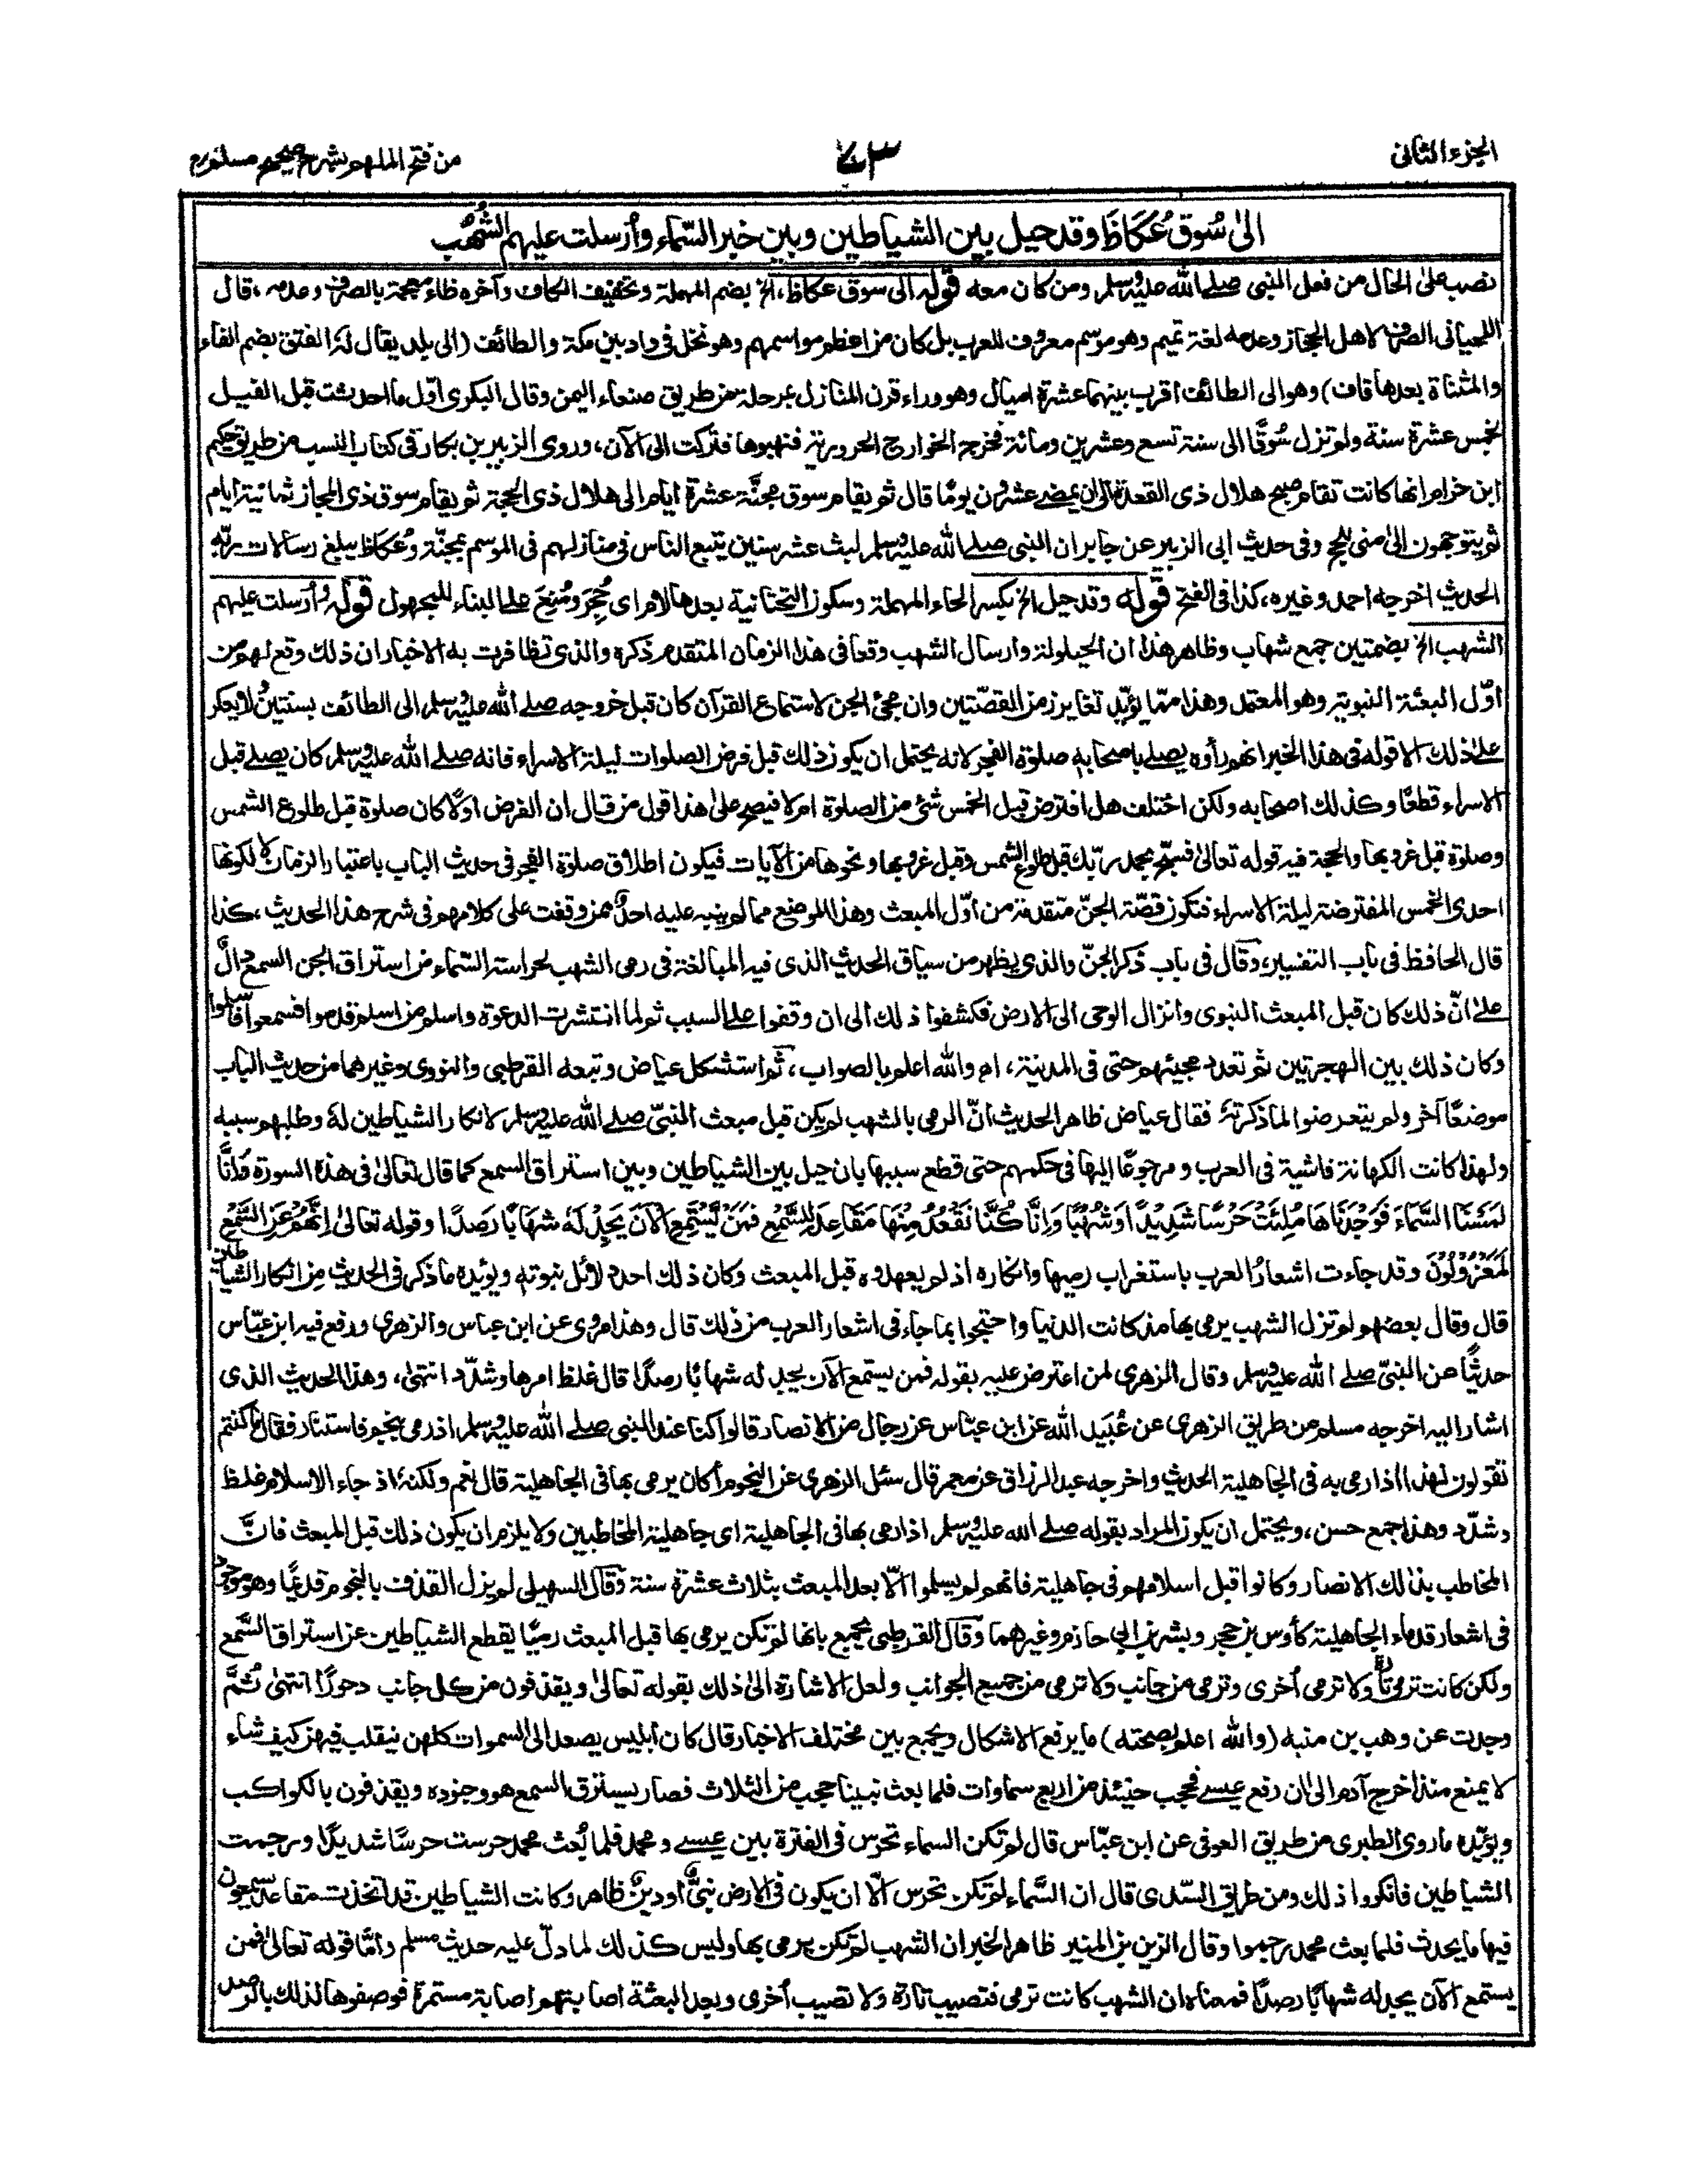 الجزء الثانى
٧٣
من فتح الملهم بشرح صحيح مسلم
الىٰ سُوق عُكَاظَ وقد حيل بين الشياطين وبين خبر السّماء وأرسلت عليهم الشُهُب
نصب على الحال من فعل النبى صلے الله عليه وسلم ومن كان معه قوله الى سوق عكاظ، الخ بضم المهملة وتخفيف الكاف وآخره ظاء معجمة بالصرف وعدمه، قال
اللحيانى الصرف لاهل الحجاز وعدمه لغة تميم وهو موسم معروف للعرب بل كان من اعظم مواسمهم وهو نخل فى واد بين مكة والطائف (الى بلد يقال لهٗ الفتق بضم الفاء
والمثناة بعدها قاف) وهو الى الطائف اقرب بينهما عشرة اميال وهو وراء قرن المنازل بمرحلة من طريق صنعاء اليمن وقال البكرى اوّل ما احدثت قبل الفيل
بخمس عشرة سنة ولم تزل سُوقًا الى سنة تسع وعشرين ومائة فخرجة الخوارج الحرورية فنهبوها فتركت الى الآن، وروى الزبير بن بكار فى كتاب النسب من طريق حكيم
ابن حزام انها كانت تقام صبح هلال ذى القعدة الى ان يمضے عشرون يومًا قال ثم يقام سوق مجنَّة عشرة ايام الى هلال ذى الحجة ثم يقام سوق ذى المجاز ثمانية ايام
ثم يتوجهون الى منى للحج وفى حديث ابى الزبير عن جابر ان النبى صلے الله عليه وسلم لبث عشر سنين يتبع الناس فى منازلهم فى الموسم بمجنّة وعُكاظ يبلغ رسالات ربّه
الحديث اخرجه احمد وغيره، كذا فى الفتح قوله وقد حيل الخ بكسر الحاء المهملة وسكون التحتانية بعدها لام اى حُجِزَ ومُنِعَ على البناء للمجهول قوله وأرسلت عليهم
الشهب الخ بضمتين جمع شهاب وظاهر هذا ان الحيلولة وارسال الشهب وقعا فى هذا الزمان المتقدم ذكره والذى تظافرت به الاخبار ان ذلك وقع لهم من
اوّل البعثة النبوية وهو المعتمد وهذا ممّا يؤيّد تغاير زمن القصّتين وان مجئ الجن لاستماع القرآن كان قبل خروجه صلے الله عليه وسلم الى الطائف بسنتين ولا يعكر
علٰى ذلك الا قوله فى هذا الخبر انهم رأوه يصلے باصحابه صلوة الفجر لانه يحتمل ان يكون ذلك قبل فرض الصلوات ليلة الاسراء فانه صلے الله عليه وسلم كان يصلے قبل
الاسراء قطعًا وكذلك اصحابه ولكن اختلف هل افترض قبل الخمس شئ من الصلوة ام لا فيصح علىٰ هذا قول من قال ان الفرض اولًا كان صلوة قبل طلوع الشمس
وصلوة قبل غروبها والحجة فيه قوله تعالىٰ فسبّح بحمد ربّك قبل طلوع الشمس وقبل غروبها ونحوها من الآيات فيكون اطلاق صلوة الفجر فى حديث الباب باعتبار الزمان لا لكونها
احدى الخمس المفترضة ليلة الاسراء فتكون قصّة الجنّ متقدمة من اوّل المبعث وهذا الموضع مما لم ينبه عليه احدٌ ممن وقفت على كلامهم فى شرح هذا الحديث، كذا
قال الحافظ فى باب التفسير، وقال فى باب ذكر الجنّ والذى يظهر من سياق الحديث الذى فيه المبالغة فى رمى الشهب لحراسة السّماء من استراق الجن السمع دالٌ
علىٰ انّ ذلك كان قبل المبعث النبوى وانزال الوحى الى الارض فكشفوا ذلك الى ان وقفوا على السبب ثم لما انتشرت الدعوة واسلم من اسلم قدموا فسمعوا فأسلموا
وكان ذلك بين الهجرتين ثم تعدد مجيئهم حتى فى المدينة، اھ والله اعلم بالصواب، ثم استشكل عياض وتبعه القرطبى والنووى وغيرهما من حديث الباب
موضعًا آخر ولم يتعرضوا لما ذكرتهٗ فقال عياض ظاهر الحديث انّ الرمى بالشهب لم يكن قبل مبعث النبىّ صلے الله عليه وسلم لانكار الشياطين لهٗ وطلبهم سببه
ولهذا كانت الكهانة فاشية فى العرب ومرجوعًا اليها فى حكمهم حتى قطع سببها بان حيل بين الشياطين وبين استراق السمع كما قال تعالىٰ فى هذه السورة وَاَنَّا
لَمَسْنَا السَّمَاءَ فَوَجَدْنَاهَا مُلِئَتْ حَرَسًا شَدِيْدًا وَشُهُبًا وَاِنَّا كُنَّا نَقْعُدُ مِنْهَا مَقَاعِدَ لِلسَّمْعِ فَمَنْ يَّسْتَمِعِ الْاٰنَ يَجِدْ لَهٗ شِهَابًا رَصَدًا وقوله تعالىٰ اِنَّهُمْ عَنِ السَّمْعِ
لَمَعْزُوْلُوْنَ وقد جاءت اشعارُ العرب باستغراب رميها وانكاره اذ لم يعهدوه قبل المبعث وكان ذلك احد دلائل نبوته ويؤيده ما ذكر فى الحديث من انكار الشياطين
قال وقال بعضهم لم تزل الشهب يرمى بها مذ كانت الدنيا واحتجوا بما جاء فى اشعار العرب من ذلك قال وهذا مروى عن ابن عباس والزهرى ورفع فيه ابن عبّاس
حديثًا عن النبىّ صلے الله عليه وسلم وقال الزهرى لمن اعترض عليه بقوله فمن يستمع الآن يجد له شهابًا رصدًا قال غلظ امرها وشدّد انتهىٰ، وهذا الحديث الذى
اشار اليه اخرجه مسلم من طريق الزهرى عن عُبَيد الله عن ابن عبّاس عن رجال من الانصار قالوا كنا عند النبى صلے الله عليه وسلم اذ رمى بنجم فاستنار فقال ما كنتم
تقولون لهذا اذا رمى به فى الجاهلية الحديث واخرجه عبد الرزاق عن معمر قال سئل الزهرى عن النجوم أكان يرمى بها فى الجاهلية قال نعم ولكنهٗ اذ جاء الاسلام غلظ
وشدّد وهذا جمع حسن، ويحتمل ان يكون المراد بقوله صلے الله عليه وسلم اذا رمى بها فى الجاهلية اى جاهلية المخاطبين ولا يلزم ان يكون ذلك قبل المبعث فانَّ
المخاطب بذلك الانصار وكانوا قبل اسلامهم فى جاهلية فانهم لم يسلموا الّا بعد المبعث بثلاث عشرة سنة وقال السهيلى لم يزل القذف بالنجوم قديمًا وهو موجود
فى اشعار قدماء الجاهلية كأوس بن حجر وبشر بن ابى حازم وغيرهما وقال القرطبى يجمع بانها لم تكن يرمى بها قبل المبعث رميًا يقطع الشياطين عن استراق السَّمع
ولكن كانت ترمى تارة ولا ترمى أخرى وترمى من جانب ولا ترمى من جميع الجوانب ولعل الاشارة الىٰ ذلك بقوله تعالىٰ ويقذفون من كل جانب دحورًا انتهىٰ ثُمَّ
وجدت عن وهب بن منبه (والله اعلم بصحته) ما يرفع الاشكال ويجمع بين مختلف الاخبار قال كان ابليس يصعد الى السموات كلهن يتقلب فيهن كيف شاء
لا يمنع منذ اخرج آدم الى ان رفع عيسے فحجب حينئذ من اربع سماوات فلما بعث نبينا حجب من الثلاث فصار يسترق السمع هو وجنوده ويقذفون بالكواكب
ويؤيّده ما روى الطبرى من طريق العوفى عن ابن عبّاس قال لم تكن السماء تحرس فى الفترة بين عيسے ومحمد فلما بُعث محمد حرست حرسًا شديدًا ورجمت
الشياطين فانكروا ذلك ومن طريق السّدى قال ان السَّماء لم تكن تحرس الّا ان يكون فى الارض نبىٌّ او دينٌ ظاهر وكانت الشياطين قد اتخذت مقاعد يسمعون
فيها ما يحدث فلما بعث محمد رجموا وقال الزين بن المنير ظاهر الخبر ان الشهب لم تكن يرمى بها وليس كذلك لما دلّ عليه حديث مسلم وأمّا قوله تعالىٰ فمن
يستمع الآن يجد له شهابًا رصدًا فمعناه ان الشهب كانت ترمى فتصيب تارة ولا تصيب أخرى وبعد البعثة اصابتهم اصابة مستمرة فوصفوها لذلك بالرصد